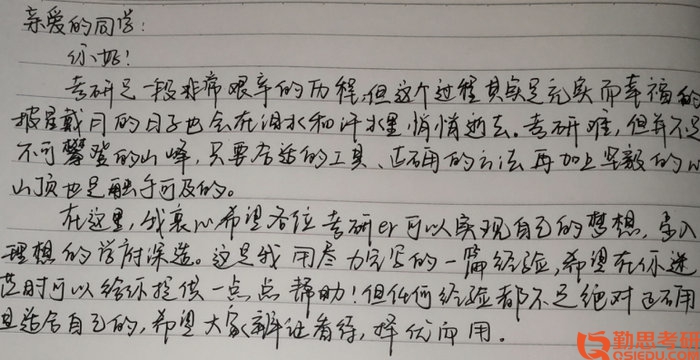 亲爱的同学：
你好！
考研是一段非常艰辛的历程，但这个过程其实是充实而幸福的
披星戴月的日子也会在泪水和汗水里悄悄逝去。考研难，但并不是
不可攀登的山峰，只要合适的工具、正确的方法再加上坚毅的心
山顶也是触手可及的。
在这里，我衷心希望各位考研er可以实现自己的梦想，考入
理想的学府深造。这是我用尽力完写的一篇经验，希望在你迷
茫时可以给你提供一点点帮助！但任何经验都不是绝对正确
且适合自己的，希望大家辩证看待，择优而用。
勤思考研
QSIEDU.COM